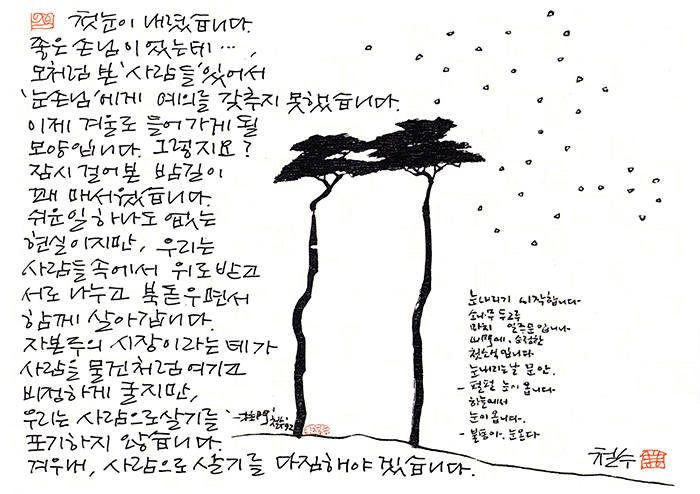 첫눈이 내렸습니다.
좋은 손님이 있는데 …,
모처럼 본 '사람들' 있어서
'눈손님'에게 예의를 갖추지 못했습니다.
이제 겨울로 들어가게 될
모양입니다. 그렇지요?
잠시 걸어본 밤길이
꽤 매서웠습니다.
쉬운일 하나도 없는
현실이지만, 우리는
사람들 속에서 위로 받고
서로 나누고 북돋우면서
함께 살아갑니다.
자본주의 시장이라는 데가
사람을 물건처럼 여기고
비정하게 굴지만,
우리는 사람으로 살기를
포기하지 않습니다.
겨우내, 사람으로 살기를 다짐해야 겠습니다.
눈내리기 시작합니다
소나무 두그루
마치 일주문입니다
첫소식입니다
눈내리는날 문안.
- 펄펄 눈이 옵니다
하늘에서
눈이 옵니다.
눈온다
철수